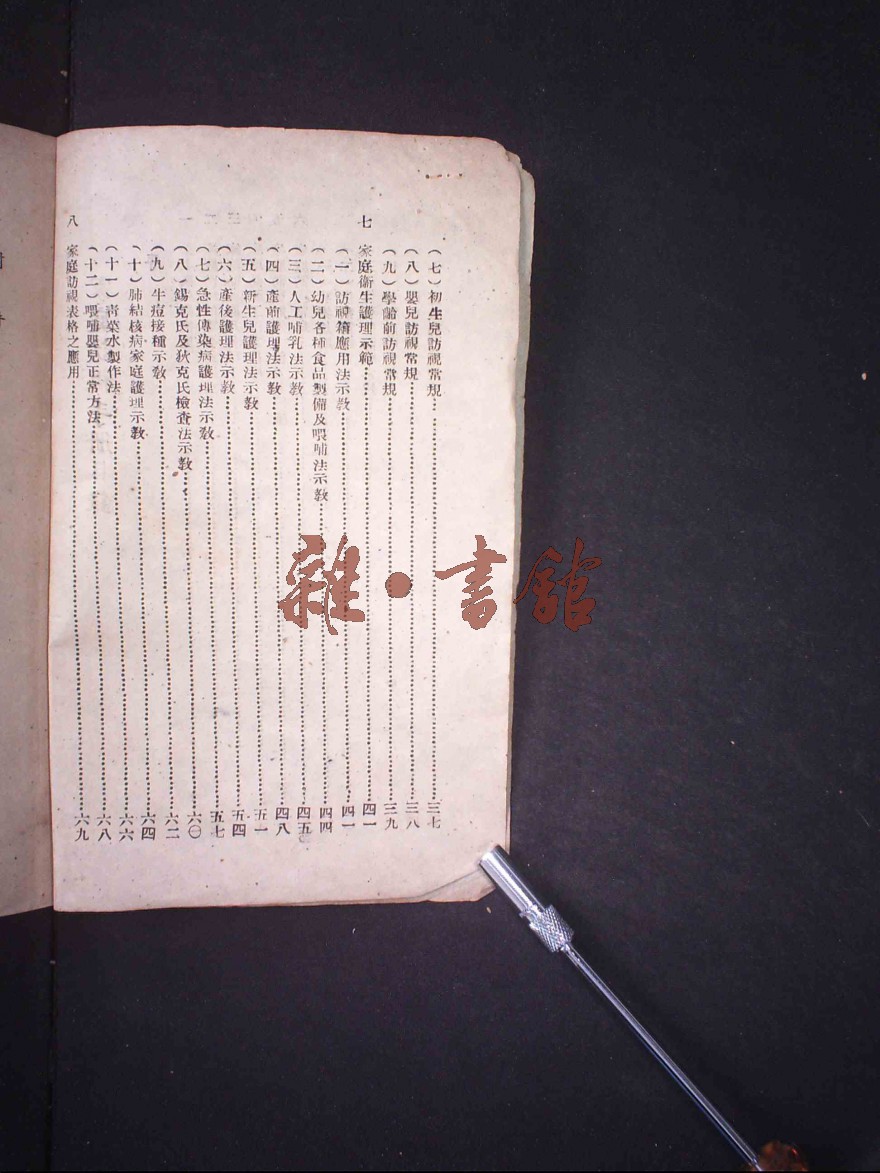 （七）初生兒訪視常規……三七
（八）嬰兒訪視常規……三八
（九）學齡前訪視常規……三九
七 家庭衛生護理示範……四一
（一）訪視箱應用法示教……四一
（二）幼兒各種食品製備及喂哺法示教……四四
（三）人工哺乳法示教……四五
（四）產前護理法示教……四八
（五）新生兒護理法示教……五一
（六）產後護理法示教……五四
（七）急性傳染病護理法示教……五七
（八）錫克氏及狄克氏檢查法示教……六〇
（九）牛痘接種示教……六二
（十）肺結核病家庭護理示教……六四
（十一）靑菜水製作法……六六
（十二）喂哺嬰兒正常方法……六八
八 家庭訪視表格之應用……六九
雜•書館